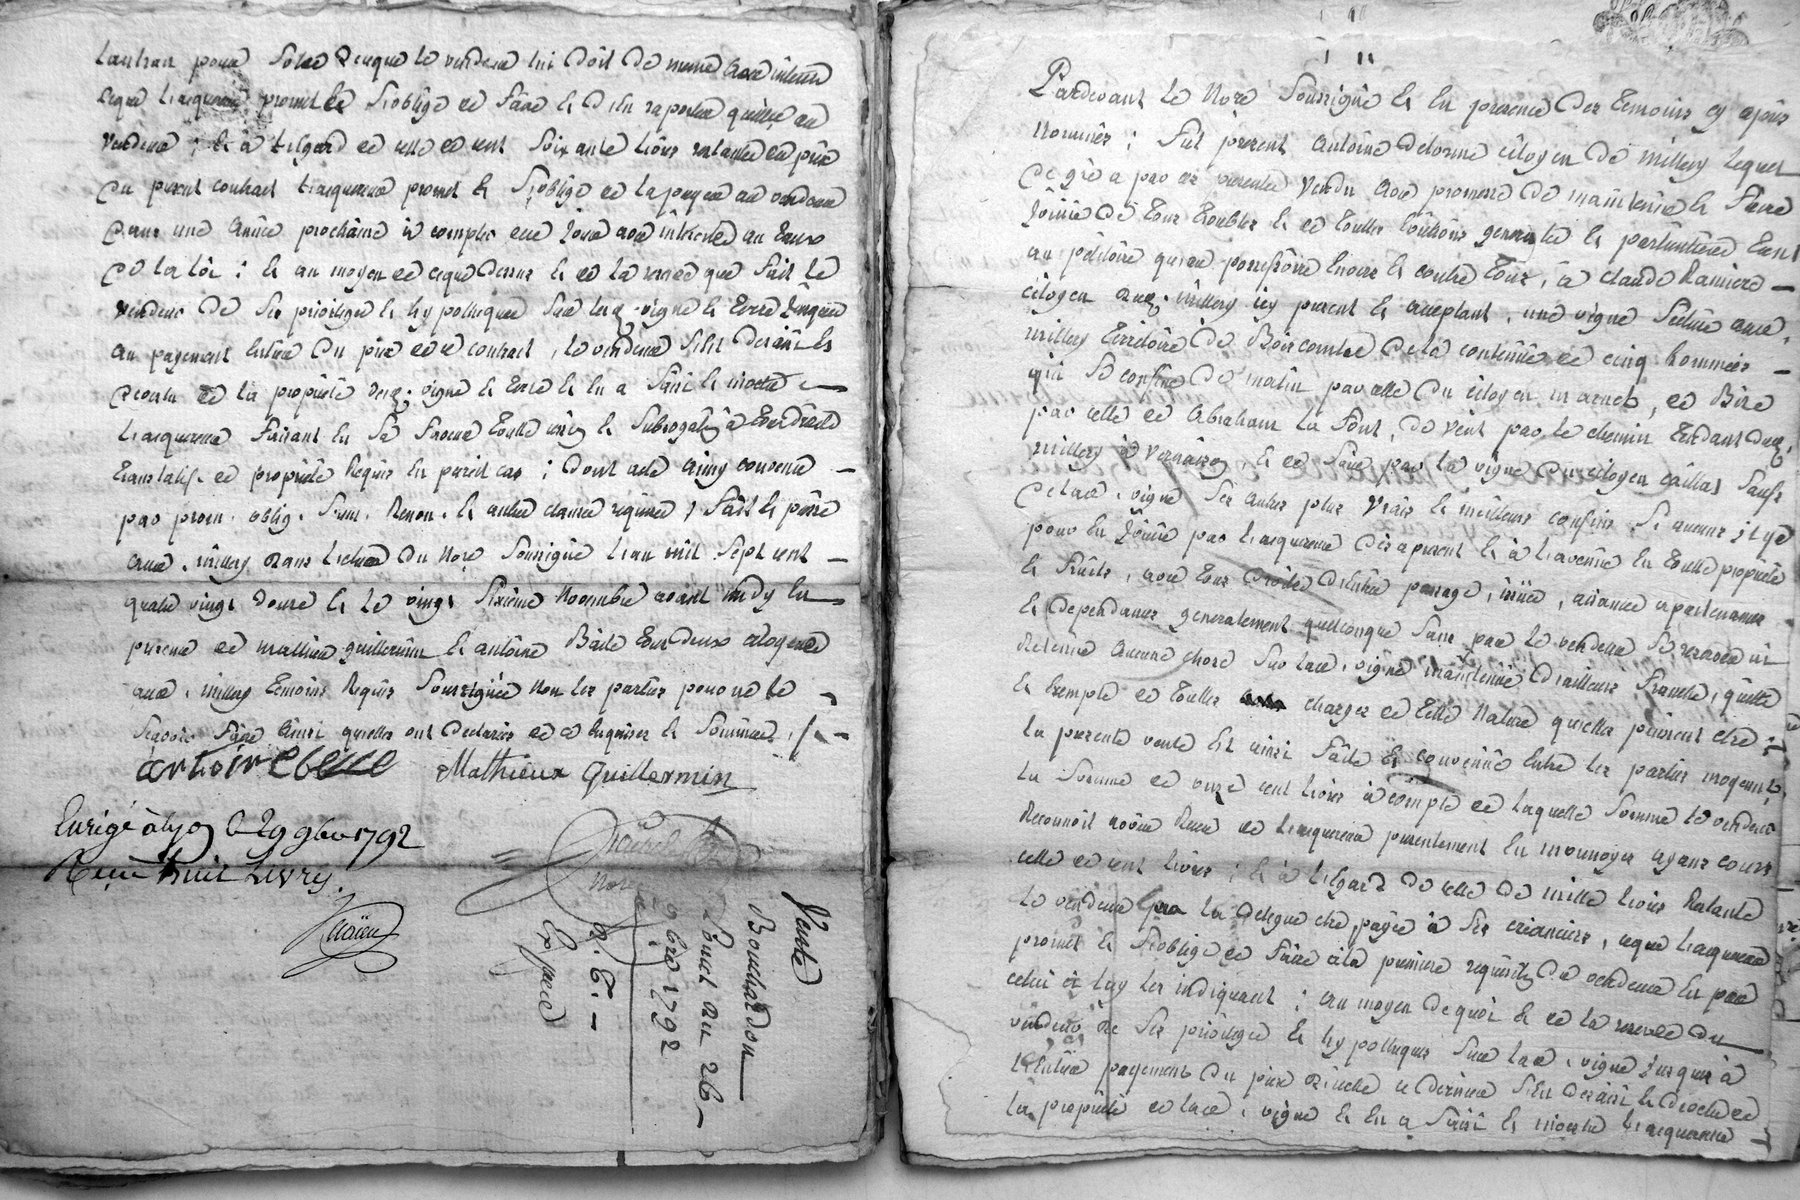 pour solde de ce que le vendeur lui doit de meme avec interets
ce que l'acquereur promet & s'oblige de faire & d'en raporter quittce au
vendeur ; & à l'egard de celle de cent soixante livres restante du prix
du present contrat l'acquereur promet & s'oblige de la payer au vendeur
dans une année prochaine à compter de ce jour avec interets au taux
de la loi ; & au moyen de ce que dessus & de la reserve que fait le
vendeur de ses privilege & hypotheques sur lesd. vigne & terre jusques
au payement entier du prix de ce contrat, le vendeur s'est desaisi &
devetu de la propriété desd. vigne & terre & en a saisi & investi
l'acquereur faisant en sa faveur toutte & subrogation tout droit
translatif de propriété requis en pareil cas ; dont acte ainsy convenu
par prom. oblig. soum. renon. & autres clauses requises ; fait & passé
aud. millery dans l'etude du nore soussigné l'an mil sept cent
quatre vingt douze & le vingt sixieme novembre avant midy en
presence de mathieu guillermin & antoine Baile tous deux citoyens
aud. millery temoins requis soussignés non les parties pour ne le
scavoir faire ainsi qu'elles ont declaré de ce enquises & sommées ./.
Mathieux Guillermin
Enrigé à Lyon le 29 9bre 1792
Reçu huit Livres.
Vente
Bouchardon
du 26
9bre 1792
Expedié
Pardevant le Nore soussigné & en presence des temoins cy apres
nommés ; fut present antoine delorme citoyen de millery lequel
de gré a par ces presentes vendu avec promesse de maintenir & faire
jouir de tous troubles & de touttes evictions generalle & particuliere tant
au petitoire qu'au possessoire envers & contre tous, à claude Raniere
citoyen dud. millery icy present & acceptant, une vigne située aud.
millery territoire de Boiscombe de la contenue de cinq hommées
qui se confine de matin par celle du citoyen, de Bize
par celle de abraham la font, de vent par le chemin tendant dud.
millery à vernaison, & de soir par la vigne du citoyen caillat sauf
de lad. vigne ses autres plus vrais & meilleurs confins si aucuns il y a
pour en jouir par l'acquereur dès apresent & à l'avenir en toutte propriété
& fruits, avec tous droits d'entrée passage, issue, aisance apartenances
& dependances generalement quelconque sans par le vendeur se reserver ni
retenir aucune chose sur lad. vigne maintenue d'ailleurs franche, quitte
& exempte de touttes charges de telle nature quelles puissent etre ;
la presente vente est ainsi faite & convenüe entre les parties moyenant
la somme de onze cent livres à compte de laquelle somme le vendeur
reconnoit avoir reçu de l'acquereur presentement en monnoyes ayant cours
celle de cent livres ; & à l'egard de celle de mille livres restante
le vendeur la delegue etre payée à ses créanciers, ce que l'acquereur
promet & s'oblige de faire à la premiere requisition du vendeur en par
celui ci luy les indiquant ; au moyen de quoi & de la reserve du
vendeur de ses privilege & hypotheques sur lad. vigne jusques à
l'entier payement du prix d'icelle ce dernier s'est desaisi & devetu de
la propriété de lad. vigne & en a saisi & investi l'acquereur